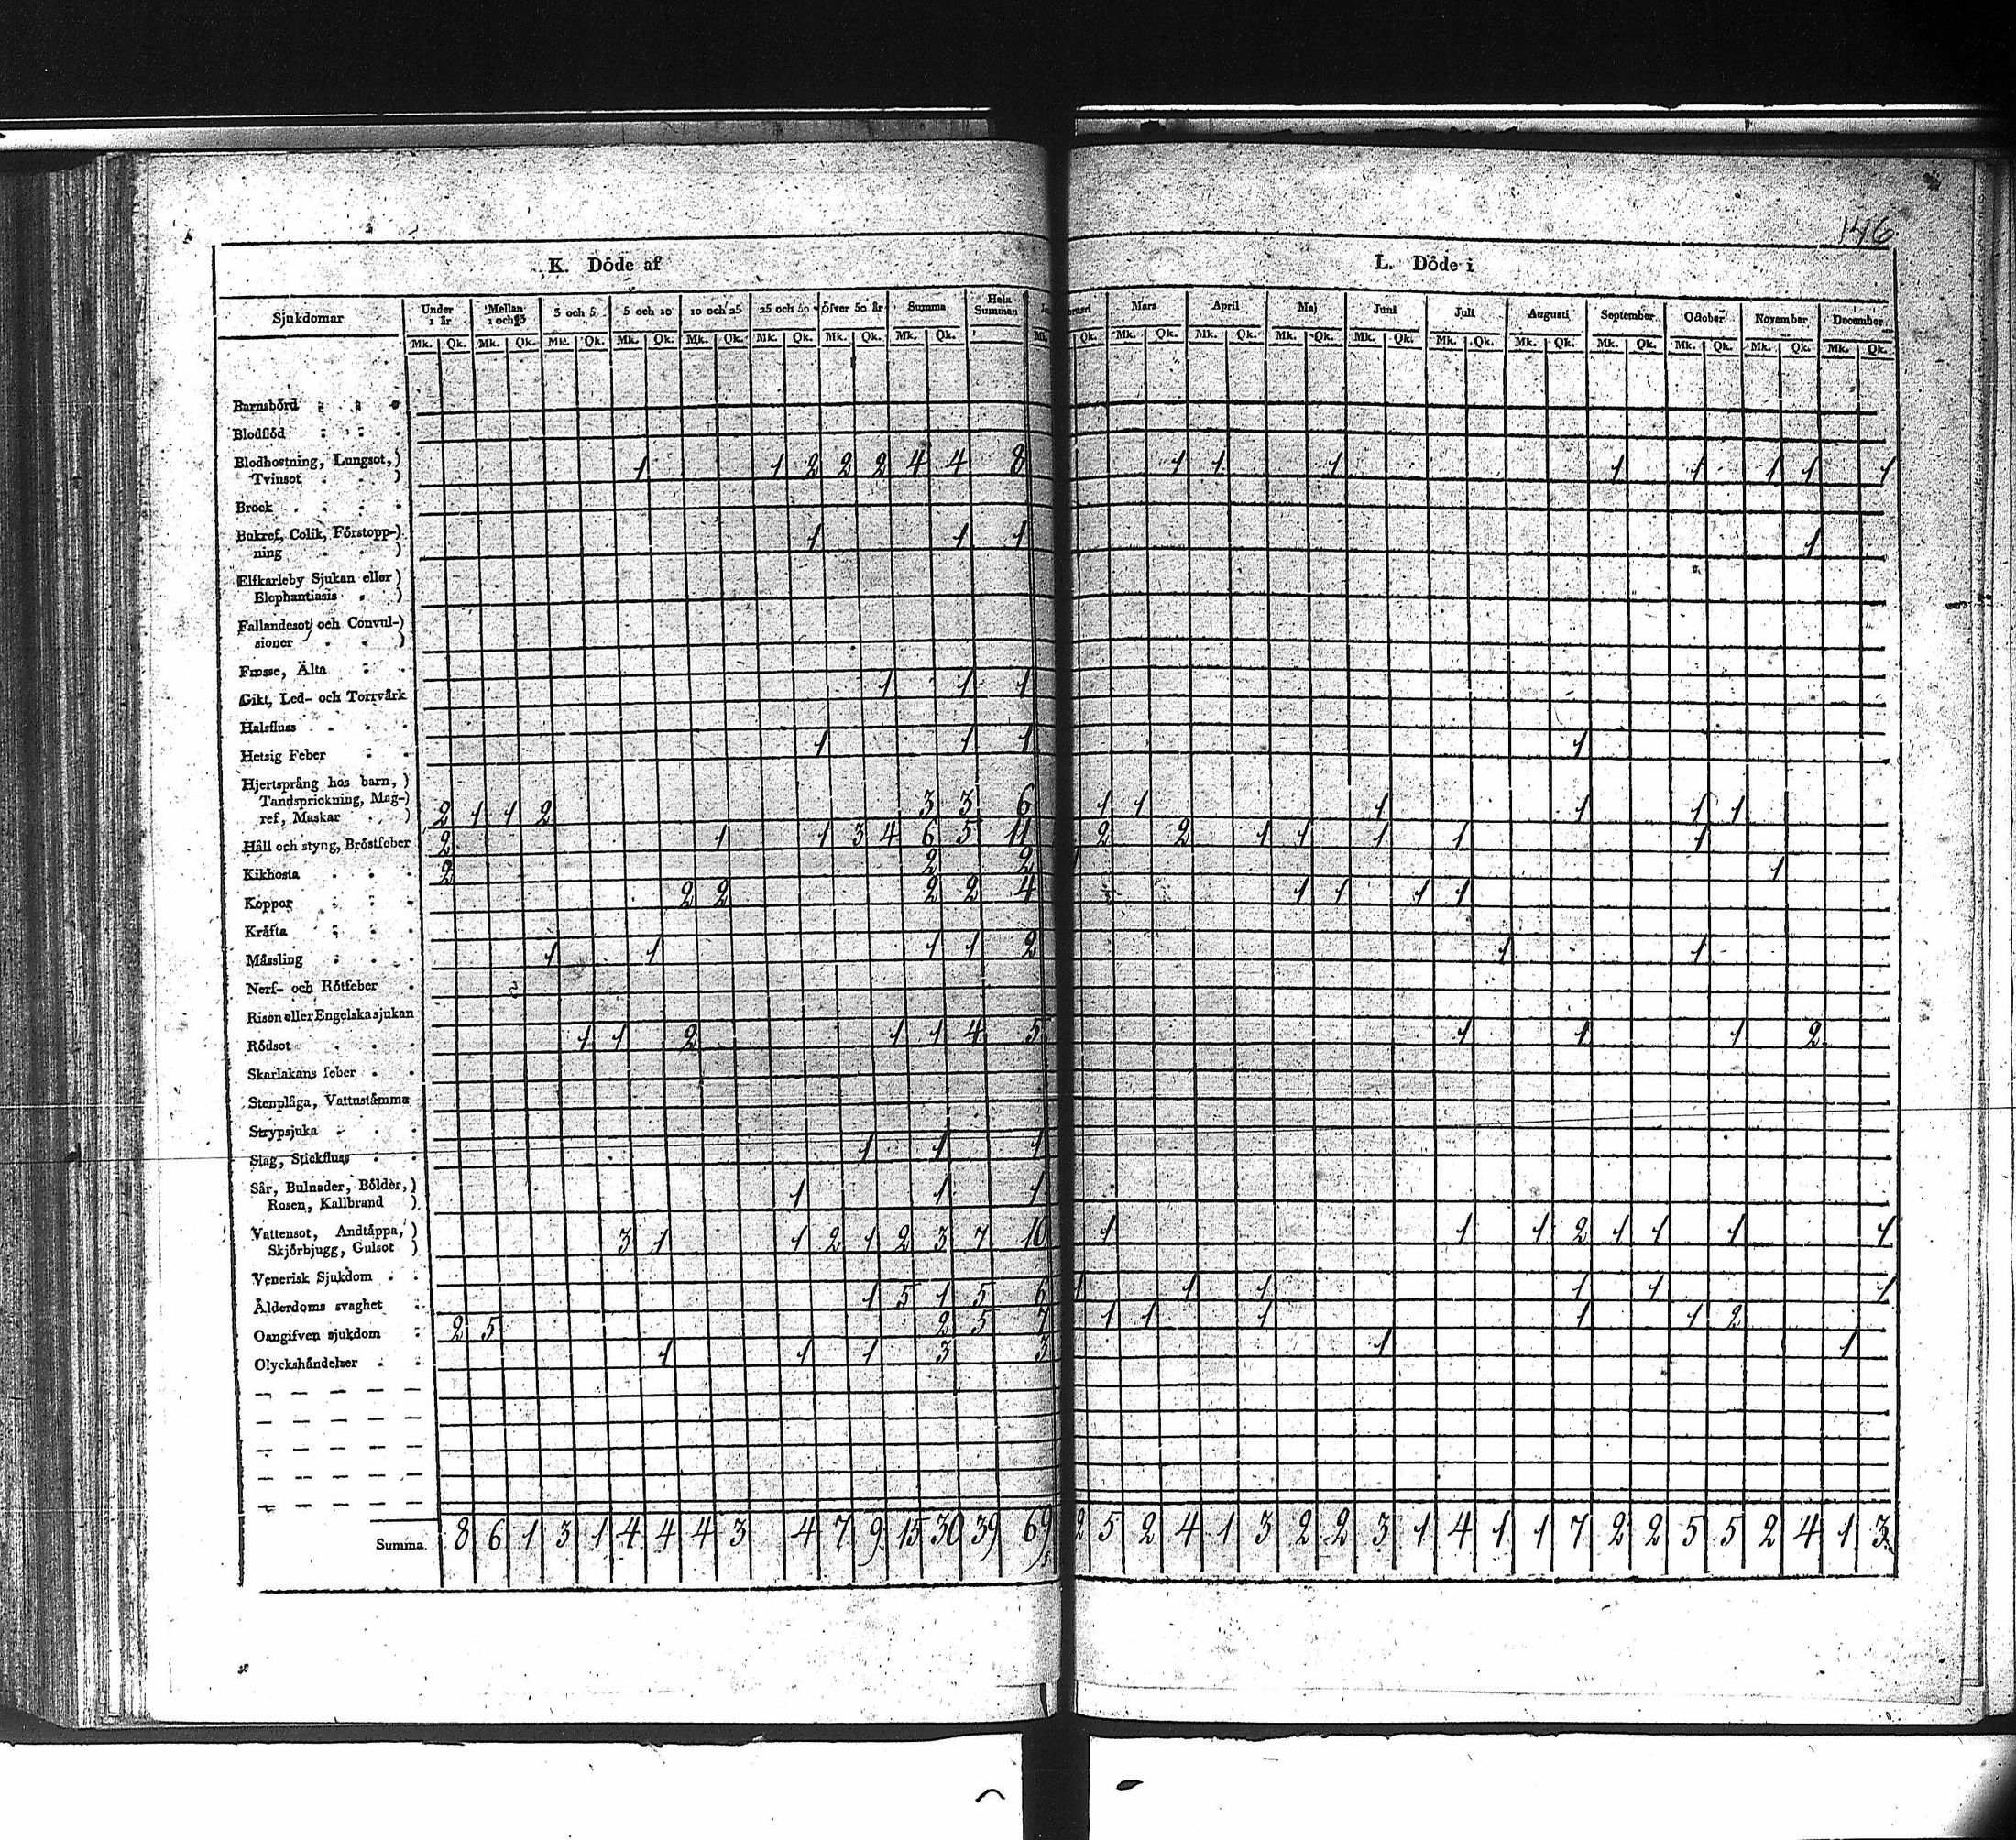 146
K. Döde af
L. Döde i
Sjukdomar Under 1 år Mellan 1 och 3 3 och 5 5 och 10 10 och 25 25 och 50 Öfver 50 år Summa Hela Summan Mars April Maj Juni Juli Augusti September October November December
Mk. Qk. Mk. Qk. Mk. Qk. Mk. Qk. Mk. Qk. Mk. Qk. Mk. Qk. Mk. Qk. Mk. Qk. Mk. Qk. Mk. Qk. Mk. Qk. Mk. Qk. Mk. Qk. Mk. Qk. Mk. Qk. Mk. Qk. Mk. Qk. Mk. Qk.
Barnsbörd
Blodflöd
Blodhostning, Lungsot,)
Tvinsot ) 1 1 2 2 2 4 4 8 1 1 1 1 1 1 1 1
Brock
Bukref, Colik, Förstopp-)
ning ) 1 1 1 1
Elfkarleby Sjukan eller)
Elephantiasis )
Fallandesot och Convul-)
sioner )
Frosse, Älta
Gikt, Led- och Torrvärk 1 1 1
Halsfluss
Hetsig Feber 1 1 1 1
Hjertsprång hos barn, )
Tandsprickning, Mag-)
ref, Maskar ) 2 1 1 2 3 3 6 1 1 1 1 1 1
Håll och styng, Bröstfeber 2 1 1 3 4 6 5 11 2 2 1 1 1 1 1
Kikhosta 2 2 2 1
Koppor 2 2 2 2 4 1 1 1 1
Kräfta
Mässling 1 1 1 1 2 1 1
Nerf- och Rötfeber
Risen eller Engelska sjukan
Rödsot 1 1 2 1 1 4 5 1 1 1 2
Skarlakans feber
Stenplåga, Vattustämma
Strypsjuka
Slag, Stickfluss 1 1 1
Sår, Bulnader, Bölder,)
Rosen, Kallbrand ) 1 1 1
Vattensot, Andtäppa,)
Skjörbjugg, Gulsot ) 3 1 1 2 1 2 3 7 10 1 1 1 2 1 1 1 1
Venerisk Sjukdom
Ålderdoms svaghet 1 5 1 5 6 1 1 1 1 1 1
Oangifven sjukdom 2 5 2 5 7 1 1 1 1 1 2
Olyckshändelser 1 1 1 3 3 1 1
Summa. 8 6 1 3 1 4 4 4 3 4 7 9 15 30 39 69 2 5 2 4 1 3 2 2 3 1 4 1 1 7 2 2 5 5 2 4 1 3